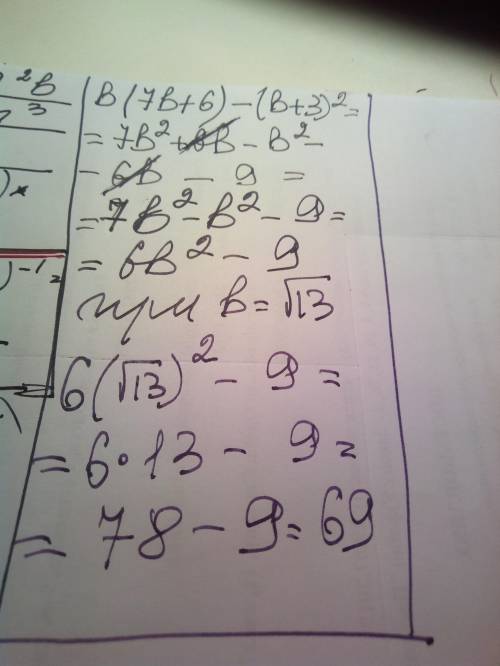 ²в
³
)
)⁻¹ =
)
в(7в+6)-(в+3)²=
= 7в²+6в-в²-
- 6в - 9 =
=7в²-в²-9=
= 6в² - 9
при в=√13
6(√13)² - 9 =
= 6·13 - 9 =
= 78 - 9 = 69